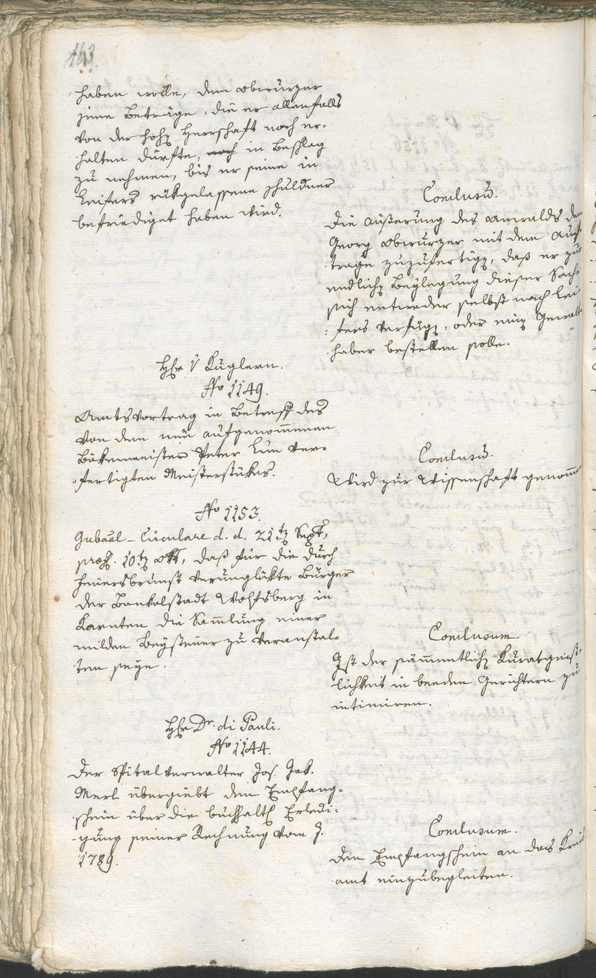 163.
haben wolle, dem Obwurzer
jene Beträge, die er allenfalls
von der hohen Herrschaft noch er-
halten dürfte, noch in Beschlag
zu nehmen, bis er seine in
Leifers rükgelassene Schuldner
befriediget haben wird.
Conclusum.
Die Äußerung des Anwalds dem
Georg Obwurzer mit dem Auf-
trage zuzufertigen, daß er zur
endlichen Beylegung dieser Sache
sich entweder selbst nach Lei-
fers verfügen, oder einen Gewalt-
haber bestellen solle.
Hr. v Kuglern.
No 1149.
Amtsvortrag in Betreff des
von dem neu aufgenommenen
Bökenmeister Peter ver-
fertigten Meisterstükes.
Conclusum.
Wird zur Wissenschaft genommen
No 1153.
Gubernial-Circulare d. d. 21ten Sept,
praes. 10ten Oct, daß für die durch
Feuersbrunst verunglükte Bürger
der Bankalstadt Wolfsberg in
Kärnten die Sammlung einer
milden Beysteuer zu veranstal-
ten seye.
Conclusum
Ist der sämmtlichen Kuratgeist-
lichkeit in beeden Gerichtern zu
intimiren.
Hr Dr. di Pauli.
No 1144.
Der Spitalverwalter Jos. Jak.
Merl übergiebt den Empfang-
schein über die buchhalt. Erledi-
gung seiner Rechnung vom J.
1789.
Conclusum.
Den Empfangschein an das Kreis-
amt einzubegleiten.